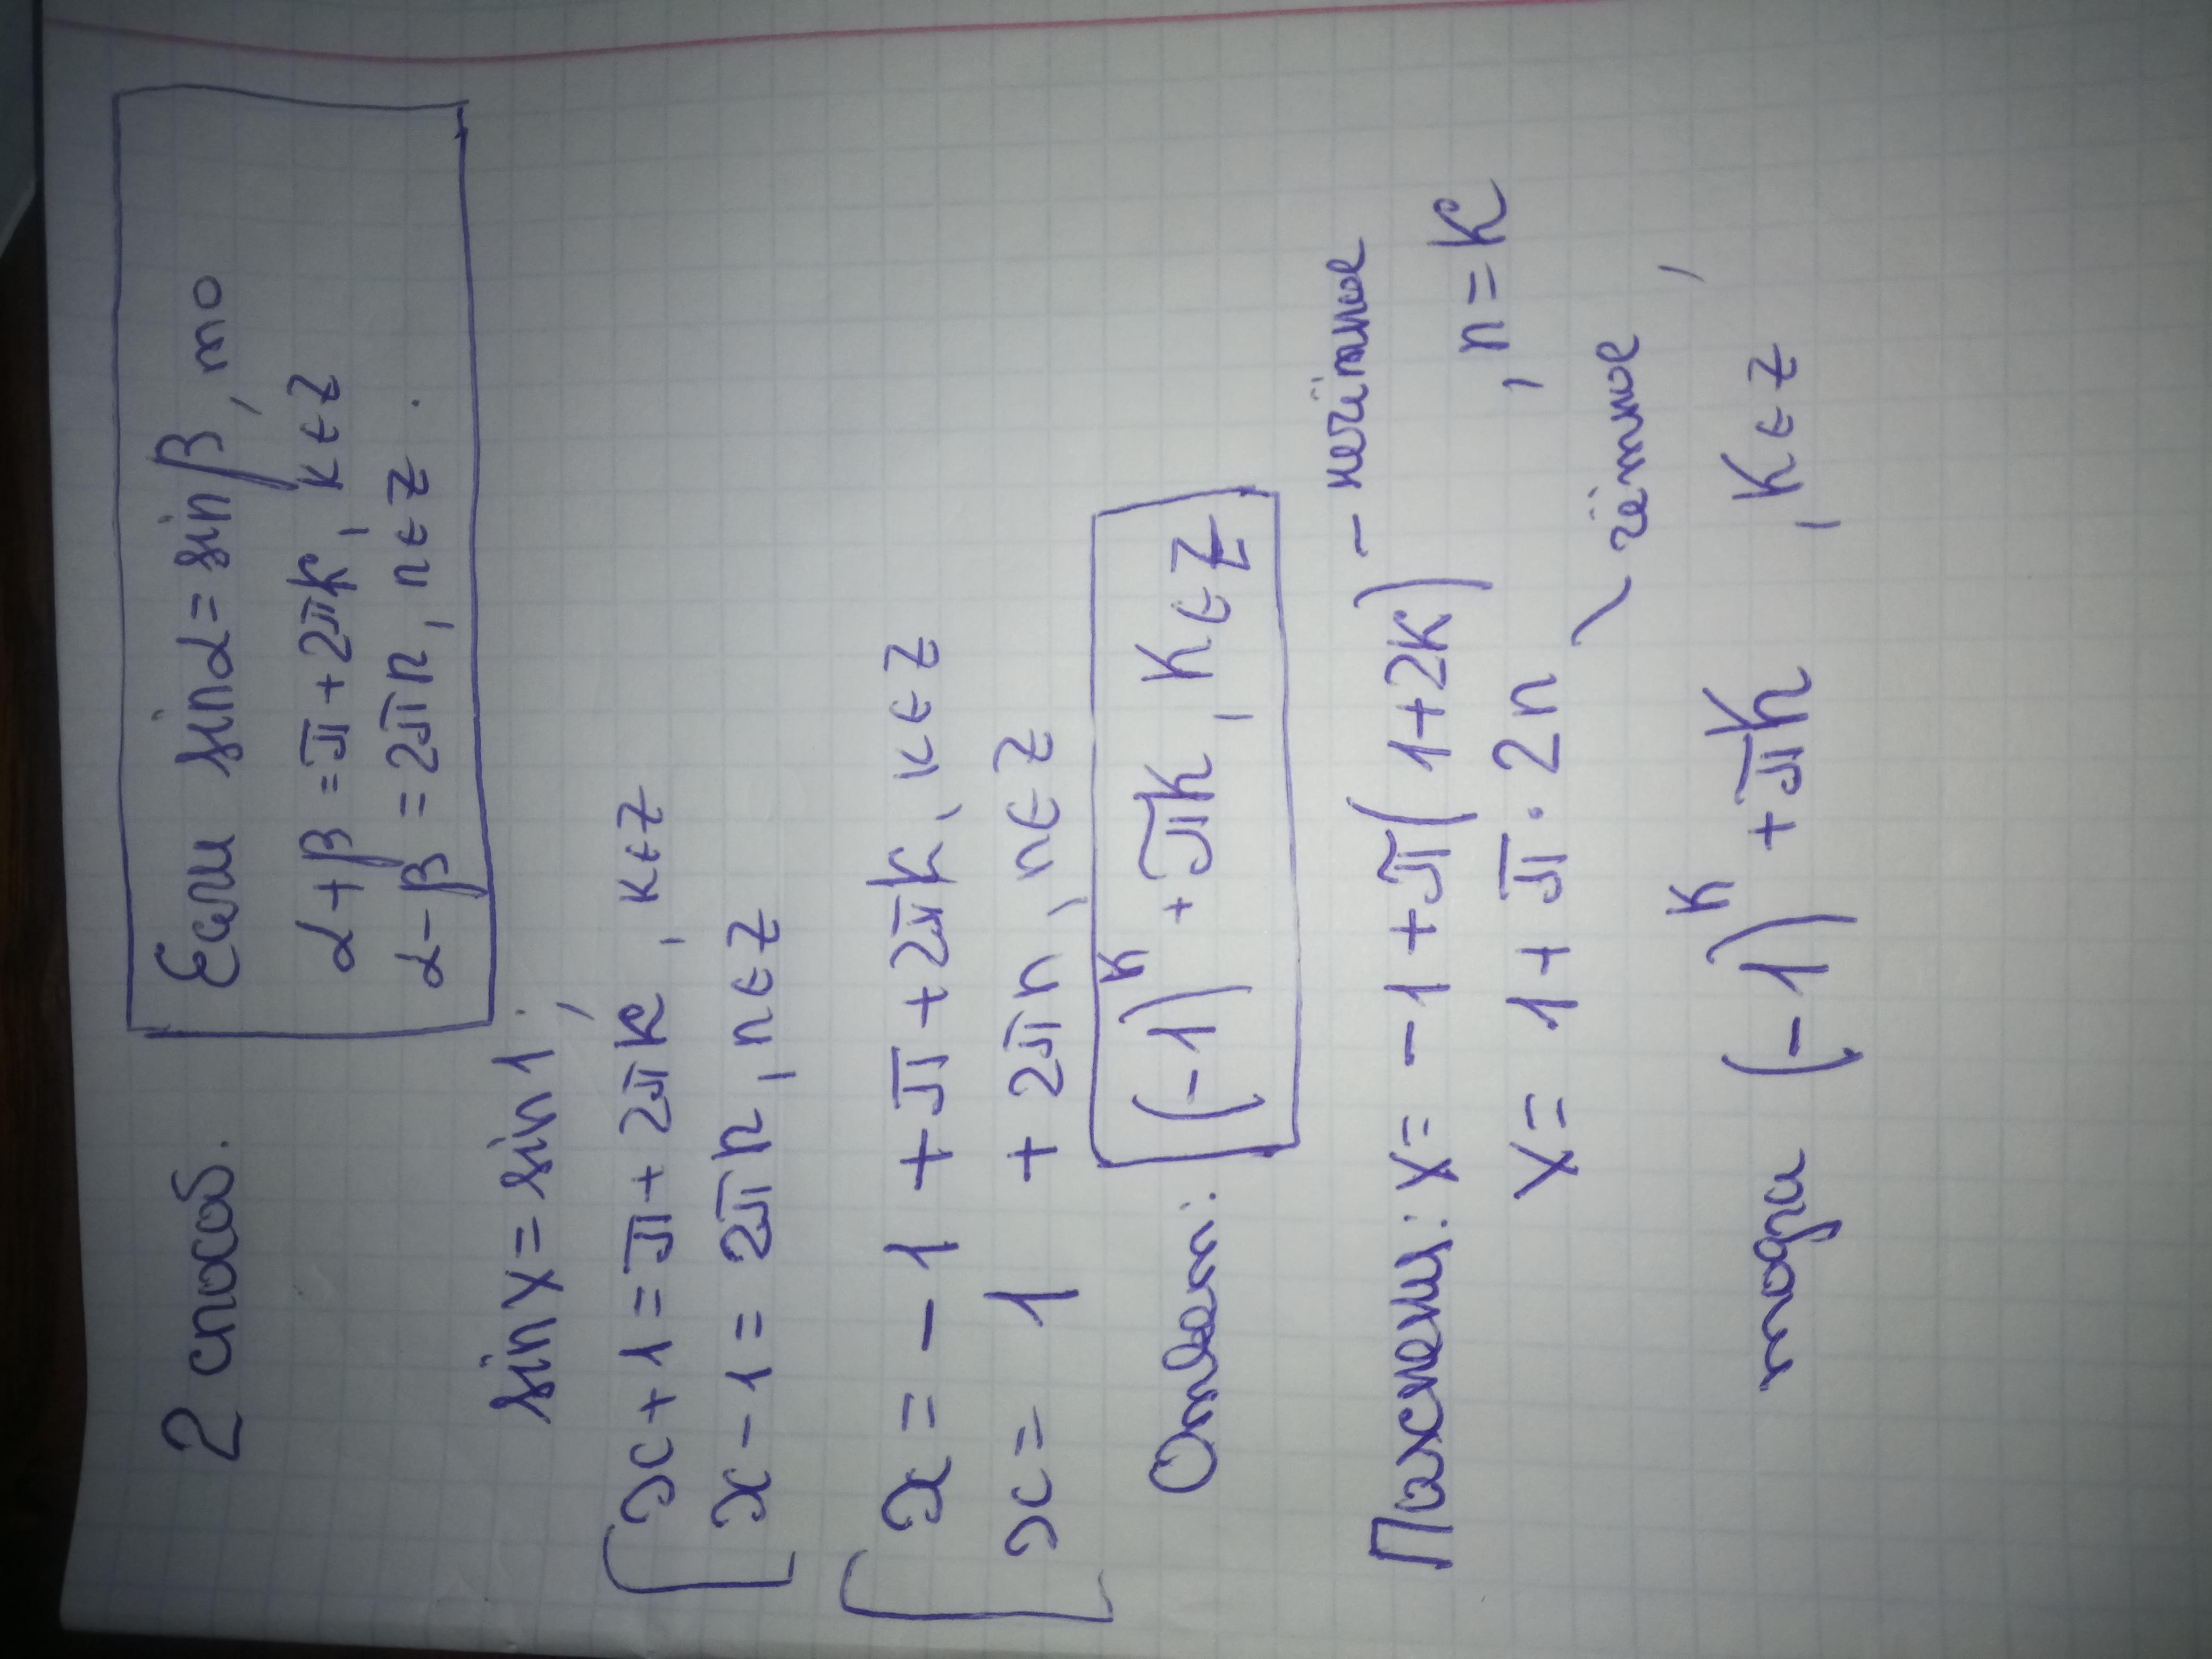 2 способ. Если sinα = sinβ, то
α+β = π + 2πk, k∈Z
α-β = 2πn, n∈Z.
sin x = sin 1;
[x+1 = π + 2πk, k∈Z
x-1 = 2πn, n∈Z
[x = -1 + π + 2πk, k∈Z
x = 1 + 2πn, n∈Z
Ответ: (-1)^k + πk, k∈Z
Пояснение: x = -1 + π(1+2k) - нечётное
x = 1 + π·2n, n=k
чётное,
тогда (-1)^k + πk, k∈Z